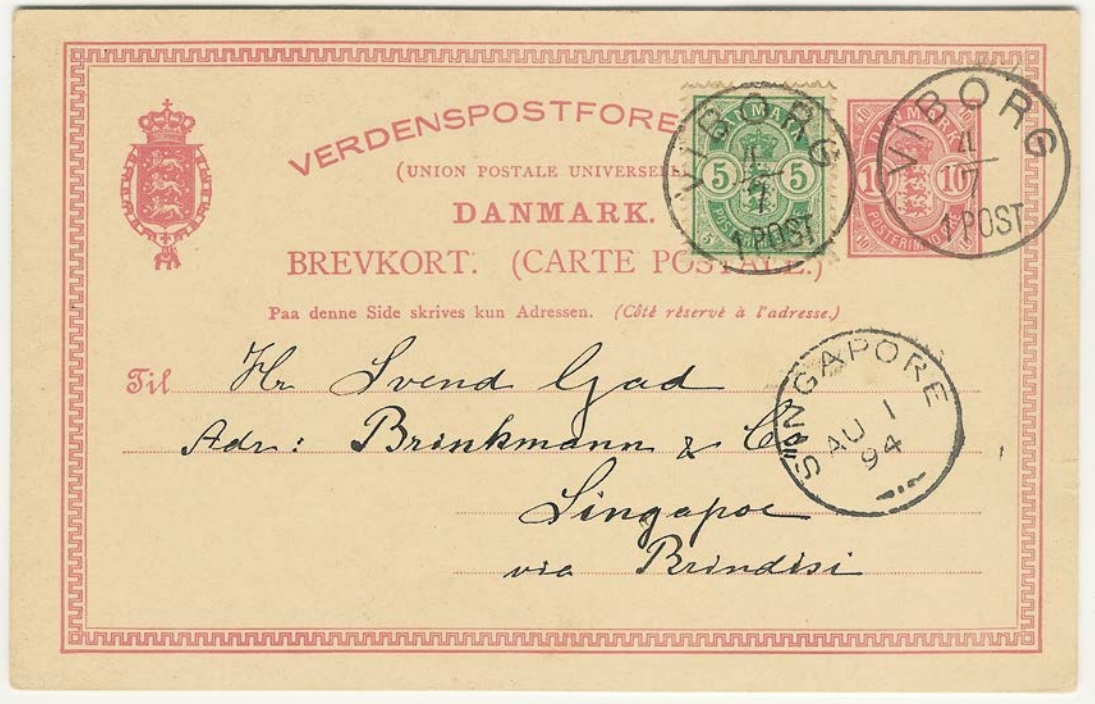 VERDENSPOSTFORE
(UNION POSTALE UNIVERSELLE
DANMARK.
BREVKORT. (CARTE POSTALE.)
Paa denne Side skrives kun Adressen. (Côté réservé à l'adresse.)
DANMARK
5 5
POSTFRIM
5
VIBORG
4
7
1 POST
10 10
DANMARK
10 10
POSTFRIM
10 10
VIBORG
4
7
1 POST
Til Hr Svend Gad
Adr: Brinkmann & Co
Singapoe
via Brindisi
SINGAPORE
AU 1
94